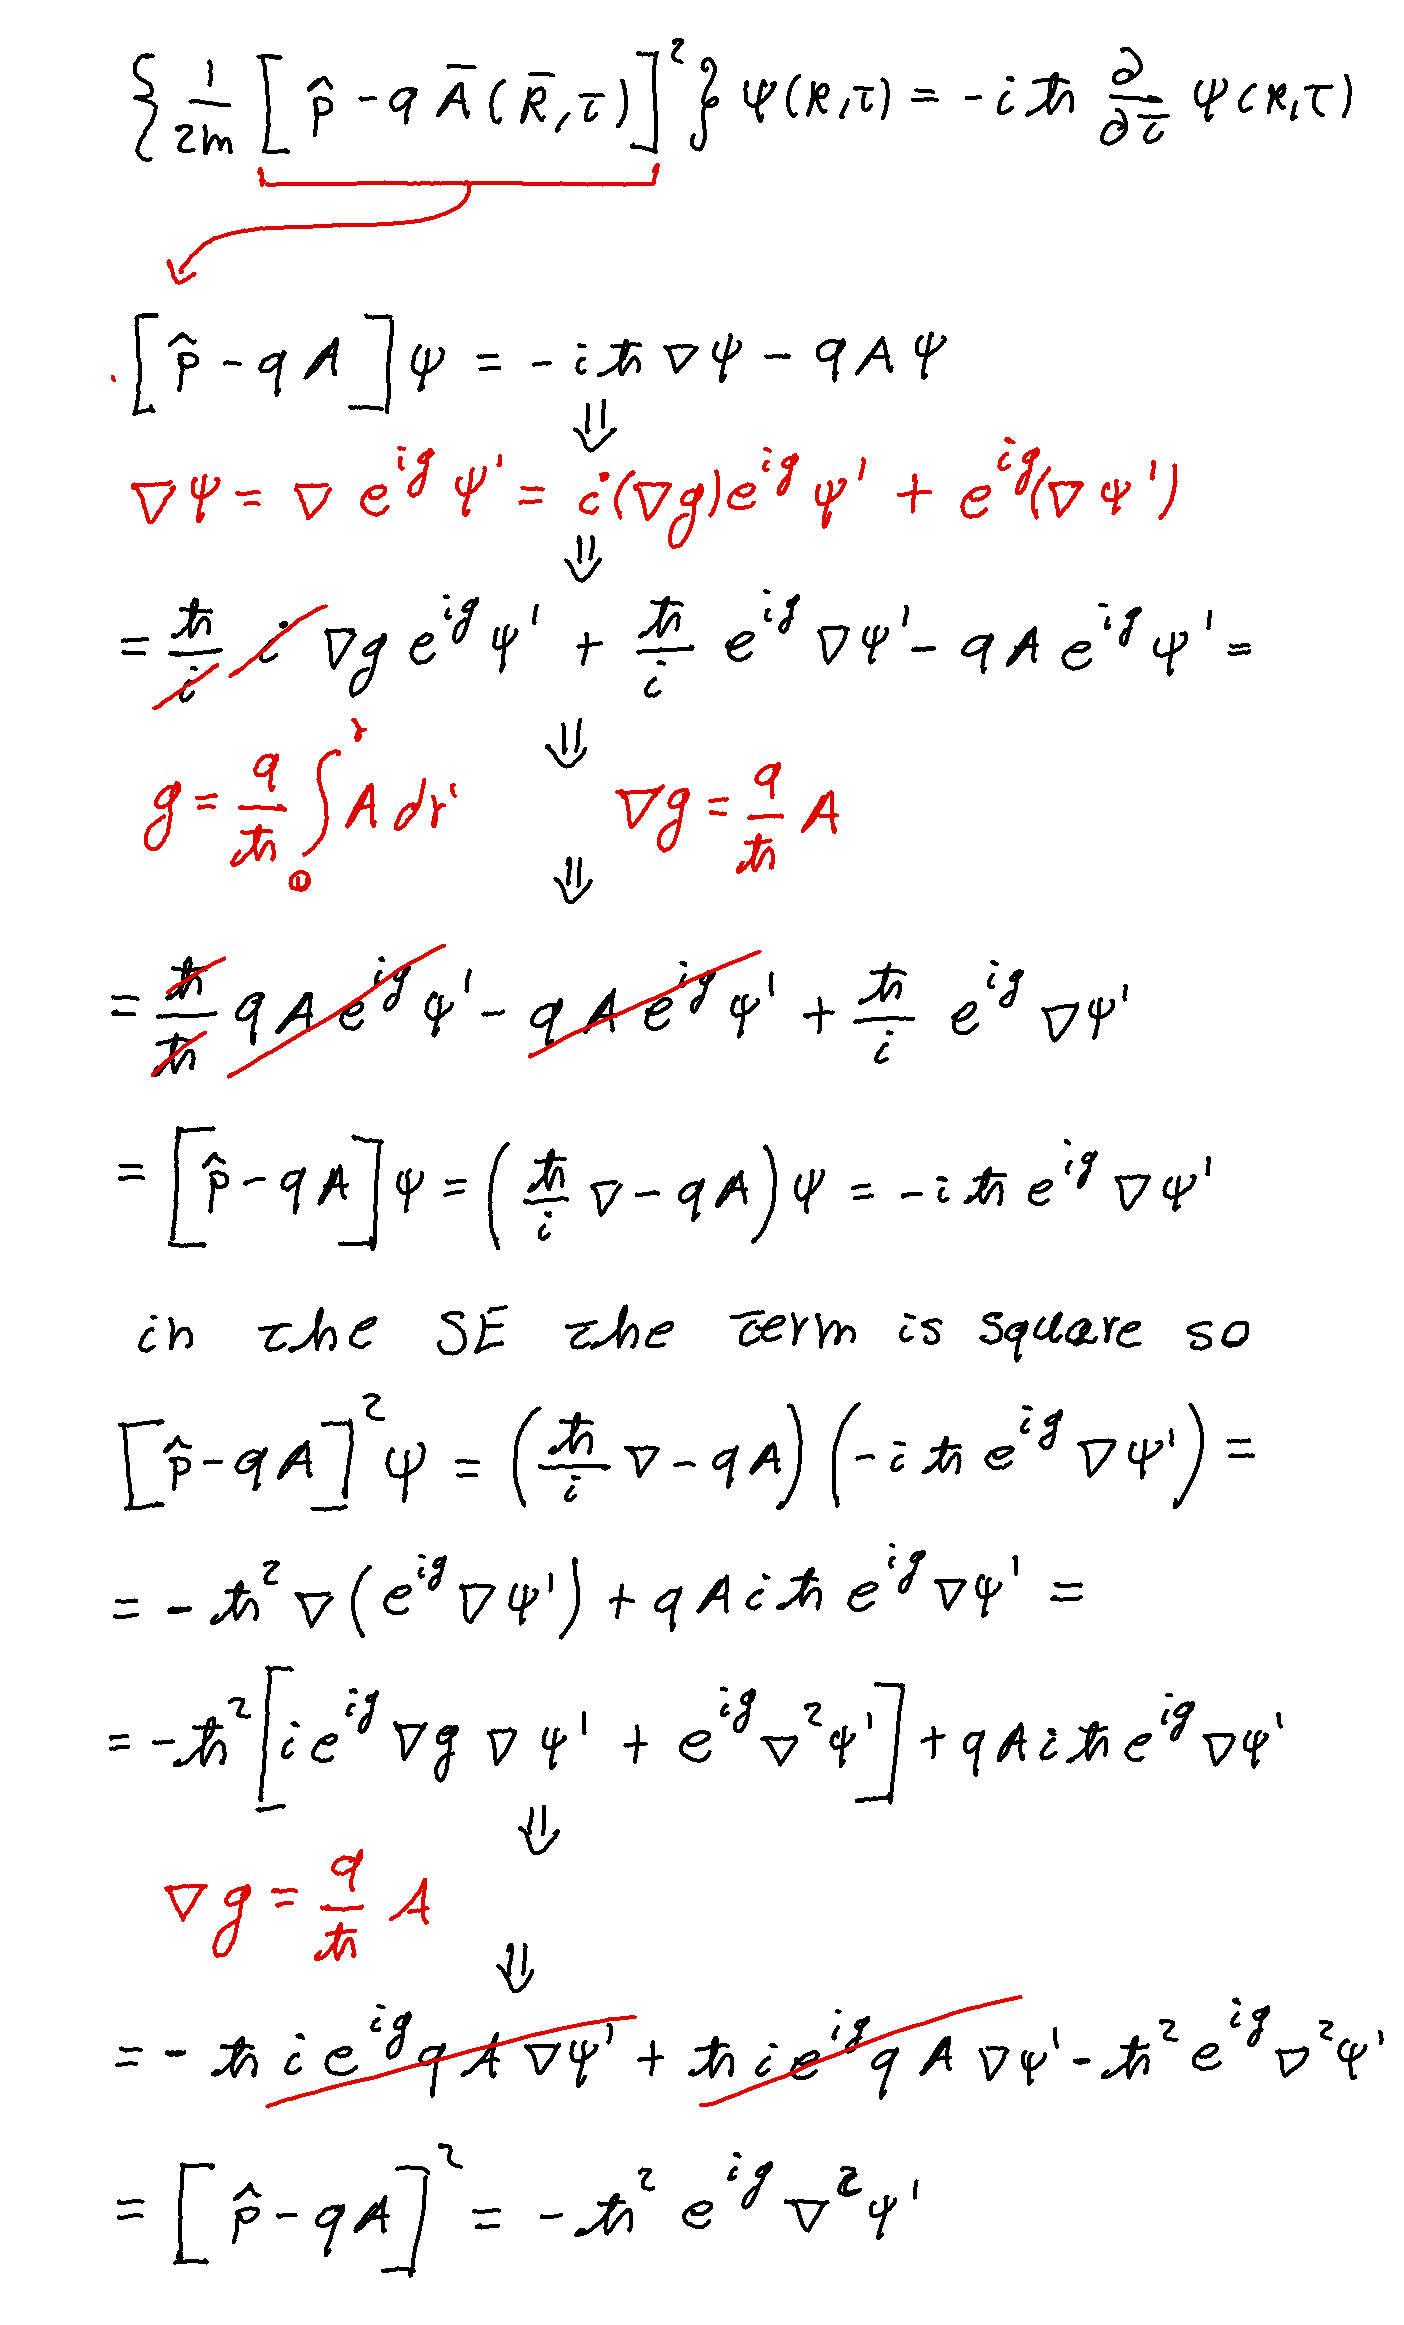 { 1/2m [ p̂ - q Ā ( R̄, τ ) ]² } ψ(R,τ) = - i ħ ∂/∂τ ψ(R,τ)
[ p̂ - q A ] ψ = - i ħ ∇ψ - q A ψ
⇓
∇ψ = ∇ e^{ig} ψ' = i(∇g) e^{ig} ψ' + e^{ig} (∇ψ')
⇓
= ħ/i i ∇g e^{ig} ψ' + ħ/i e^{ig} ∇ψ' - q A e^{ig} ψ' =
⇓
g = q/ħ ∫₀^r A dr' ∇g = q/ħ A
⇓
= ħ/ħ q A e^{ig} ψ' - q A e^{ig} ψ' + ħ/i e^{ig} ∇ψ'
= [ p̂ - q A ] ψ = ( ħ/i ∇ - q A ) ψ = - i ħ e^{ig} ∇ψ'
in the SE the term is square so
[ p̂ - q A ]² ψ = ( ħ/i ∇ - q A ) ( - i ħ e^{ig} ∇ψ' ) =
= - ħ² ∇ ( e^{ig} ∇ψ' ) + q A i ħ e^{ig} ∇ψ' =
= - ħ² [ i e^{ig} ∇g ∇ψ' + e^{ig} ∇²ψ' ] + q A i ħ e^{ig} ∇ψ'
⇓
∇g = q/ħ A
⇓
= - ħ i e^{ig} q A ∇ψ' + ħ i e^{ig} q A ∇ψ' - ħ² e^{ig} ∇²ψ'
= [ p̂ - q A ]² = - ħ² e^{ig} ∇²ψ'